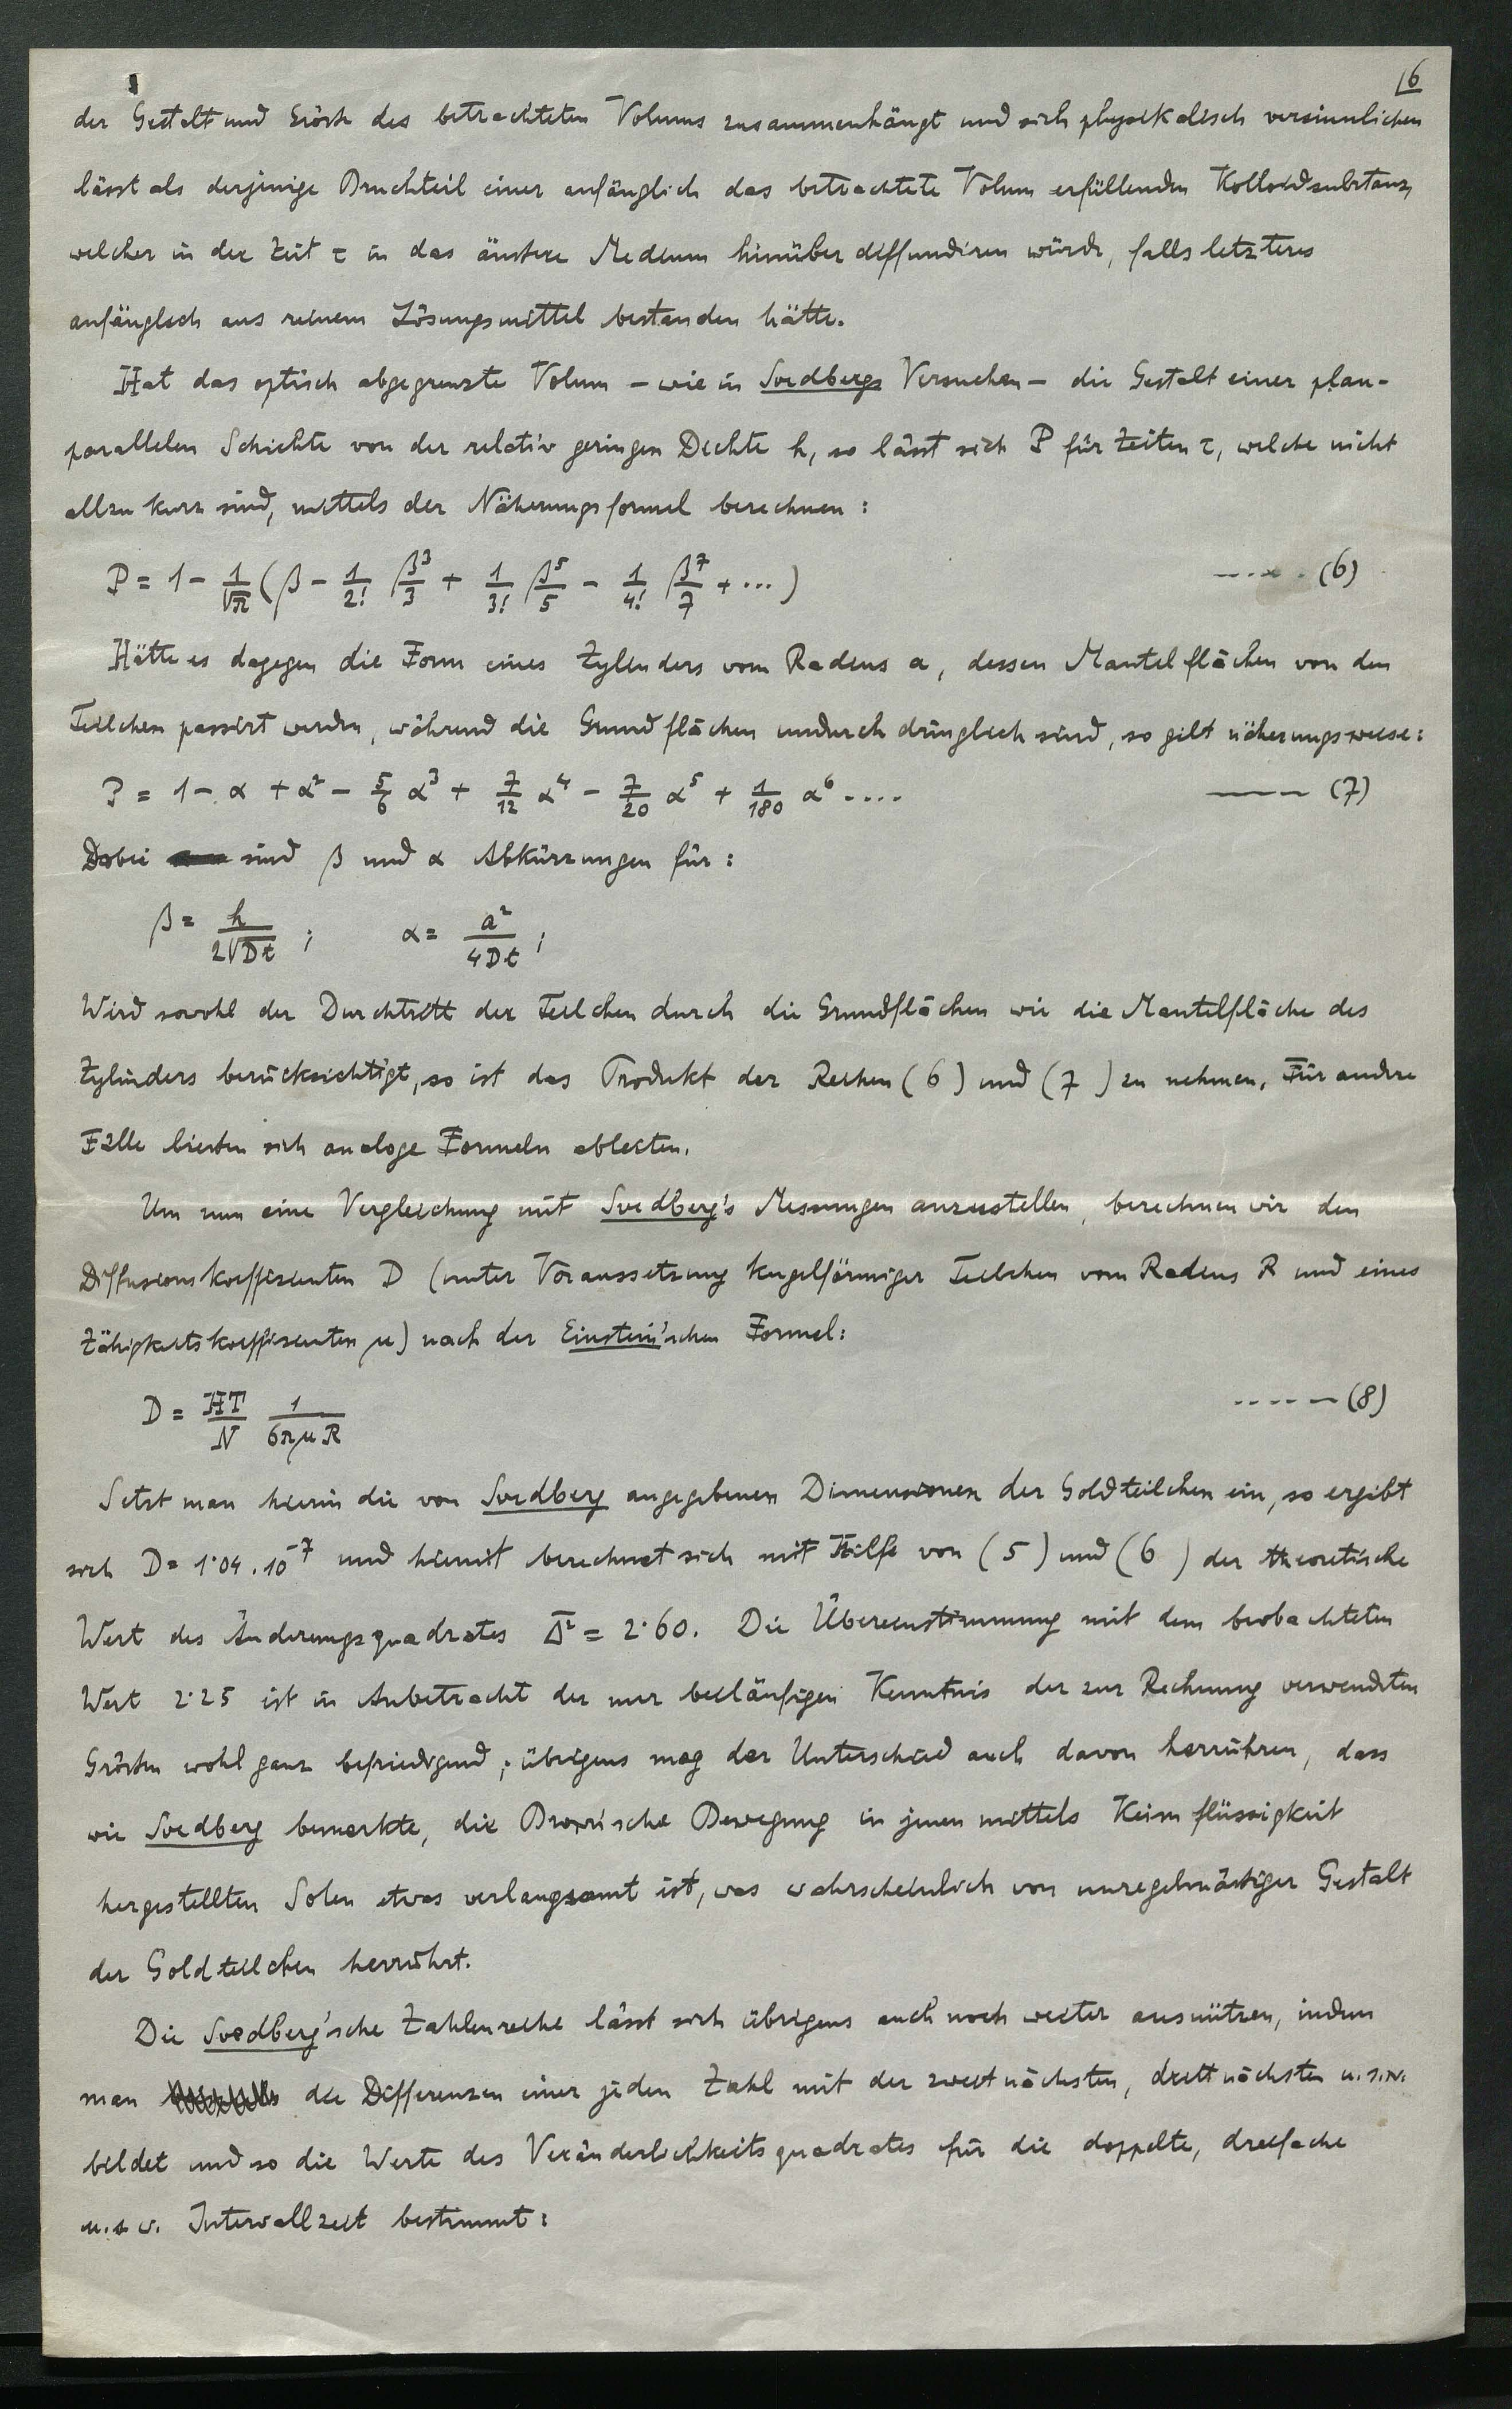 16
der Gestalt und Grösse des betrachteten Volums zusammenhängt und sich physikalisch versinnlichen
lässt als derjenige Bruchteil einer anfänglich das betrachtete Volum erfüllenden Kolloidsubstanz,
welcher in der Zeit τ in das äussere Medium hinüber diffundiren würde, falls letzteres
anfänglich aus reinem Lösungsmittel bestanden hätte.
Hat das optisch abgegrenzte Volum – wie in Svedbergs Versuchen – die Gestalt einer plan-
parallelen Schichte von der relativ geringen Dichte h, so lässt sich P für Zeiten τ, welche nicht
allzu kurz sind, mittels der Näherungsformel berechnen :
P = 1 - 1/√π (β - 1/2! β³/3 + 1/3! β⁵/5 - 1/4! β⁷/7 + ...) ---.. (6)
Hätte es dagegen die Form eines Zylinders vom Radius a, dessen Mantelflächen von den
Teilchen passirt werden, während die Grundflächen undurchdringlich sind, so gilt näherungsweise:
P = 1 - α + α² - 5/6 α³ + 7/12 α⁴ - 7/20 α⁵ + 1/180 α⁶ .... --- (7)
Dabei sind β und α Abkürzungen für :
β = h/2√Dt ; α = a²/4Dt ;
Wird sowohl der Durchtritt der Teilchen durch die Grundflächen wie die Mantelfläche des
Zylinders berücksichtigt, so ist das Produkt der Reihen (6) und (7) zu nehmen. Für andere
Fälle liessen sich analoge Formeln ableiten.
Um nun eine Vergleichung mit Svedberg's Messungen anzustellen, berechnen wir den
Diffusionskoeffizienten D (unter Voraussetzung kugelförmiger Teilchen vom Radius R und eines
Zähigkeitskoeffizienten μ) nach der Einstein'schen Formel:
D = HT/N 1/6πμR ----- (8)
Setzt man hierin die von Svedberg angegebenen Dimensionen der Goldteilchen ein, so ergibt
sich D = 1·04 . 10⁻⁷ und hiemit berechnet sich mit Hilfe von (5) und (6) der theoretische
Wert des Änderungsquadrates Δ̅² = 2·60. Die Übereinstimmung mit dem beobachteten
Wert 2·25 ist in Anbetracht der nur beiläufigen Kenntnis der zur Rechnung verwendeten
Grössen wohl ganz befriedigend ; übrigens mag der Unterschied auch davon herrühren, dass
wie Svedberg bemerkte, die Brown'sche Bewegung in jenen mittels Keimflüssigkeit
hergestellten Solen etwas verlangsamt ist, was wahrscheinlich von unregelmässiger Gestalt
der Goldteilchen herrührt.
Die Svedberg'sche Zahlenreihe lässt sich übrigens auch noch weiter ausnützen, indem
man die Differenzen einer jeden Zahl mit der zweitnächsten, drittnächsten u.s.w.
bildet und so die Werte des Veränderlichkeitsquadrates für die doppelte, dreifache
u.s.w. Intervallzeit bestimmt :